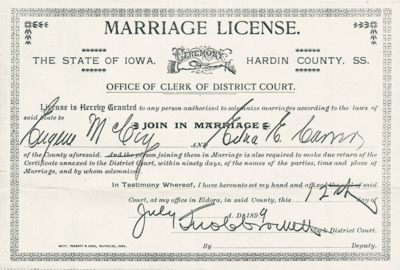 MARRIAGE LICENSE.
THE STATE OF IOWA, CEREMONY HARDIN COUNTY, SS.
OFFICE OF CLERK OF DISTRICT COURT.
License is Hereby Granted to any person authorized to solemnize marriages according to the laws of
said State to JOIN IN MARRIAGE
Eugene AND Edna E.
of the County aforesaid and the person joining them in Marriage is also required to make due return of the
Certificate annexed to the District Court, within ninety days, of the names of the parties, time and place of
Marriage, and by whom solemnized
In Testimony Whereof, I have hereunto set my hand and affixed the seal of said
Court, at my office in Eldora, in said County, this 12th day of
July A. D. 1899
Clerk District Court.
By Deputy.